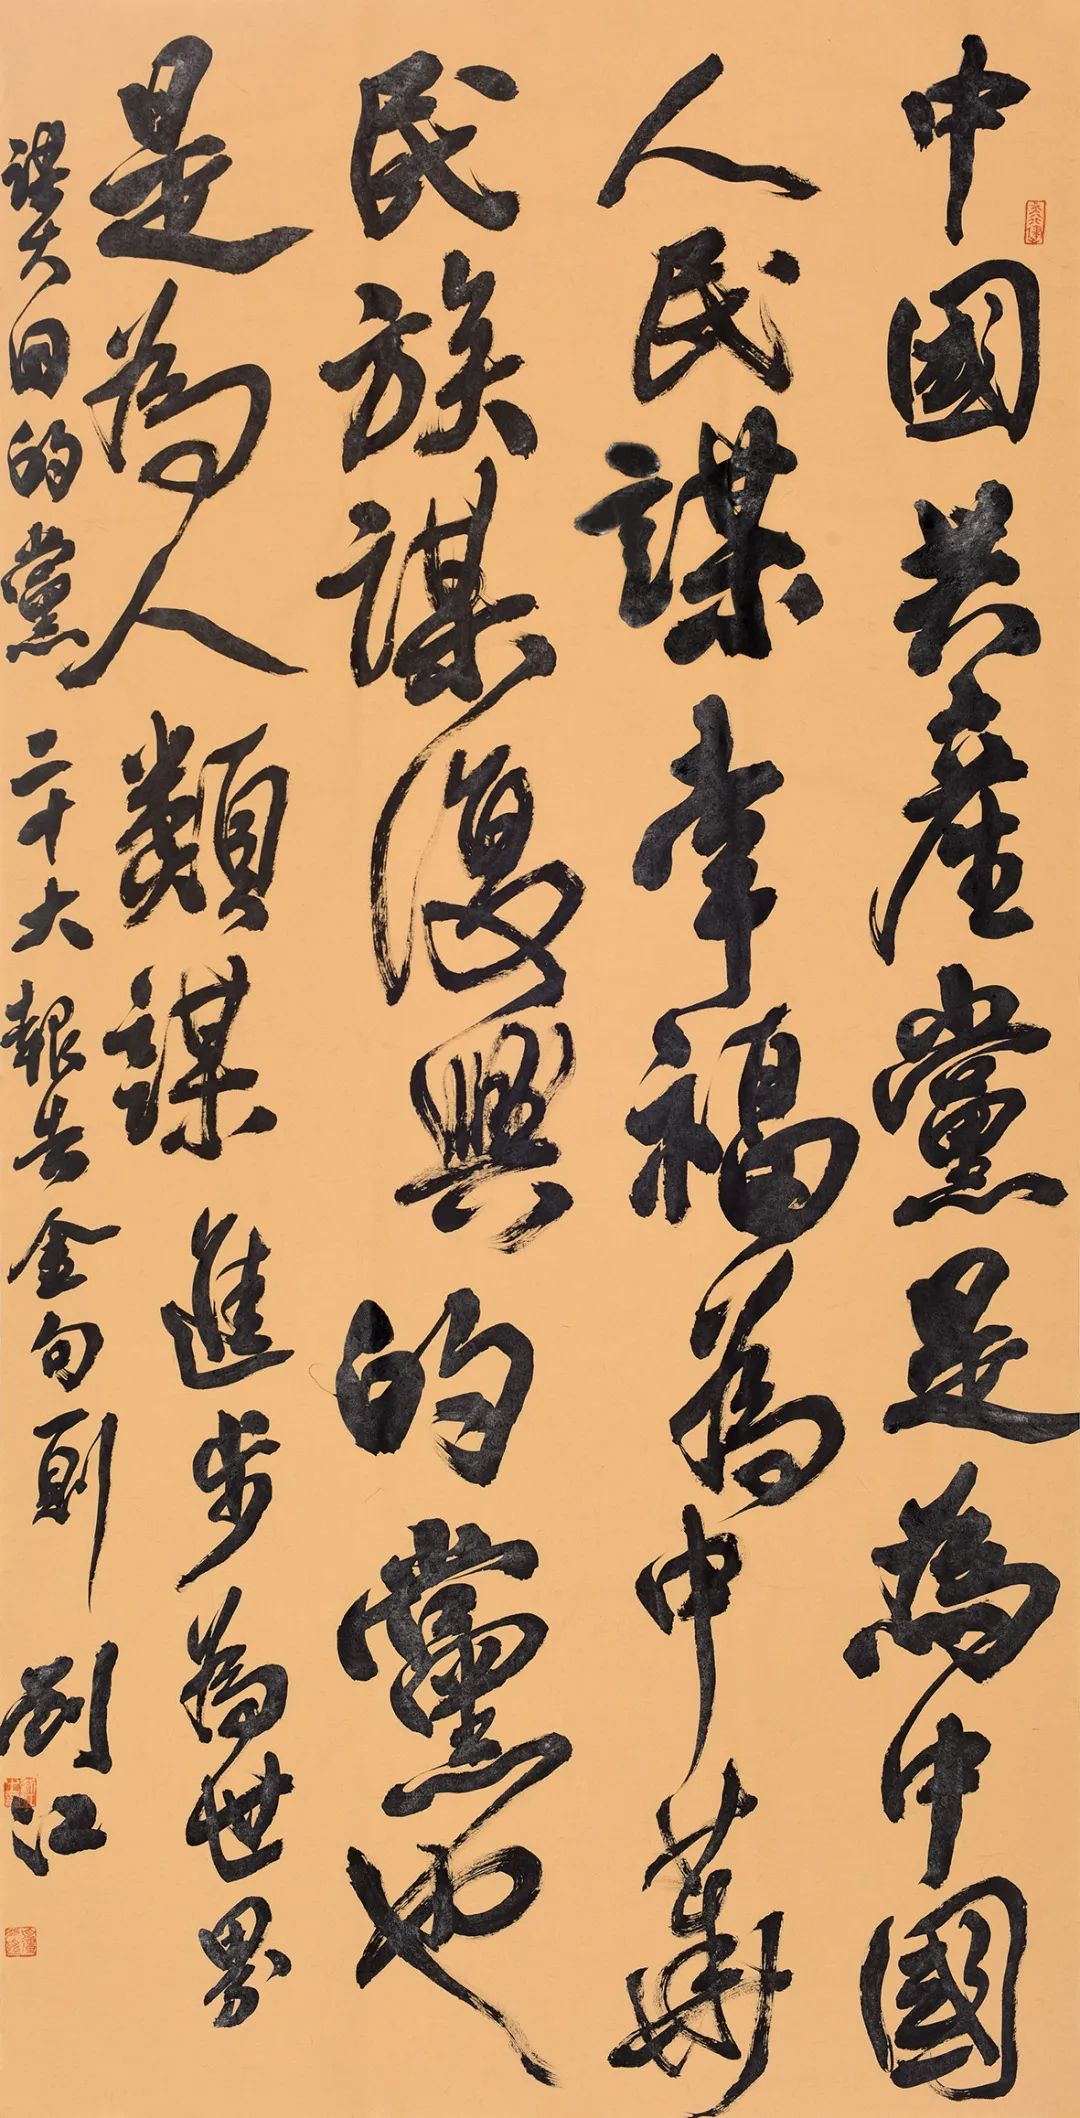 中國共產黨是為中國
人民謀幸福為中華
民族謀復興的黨也
是為人類謀進步為世界
謀大同的黨 二十大報告金句則 劉江